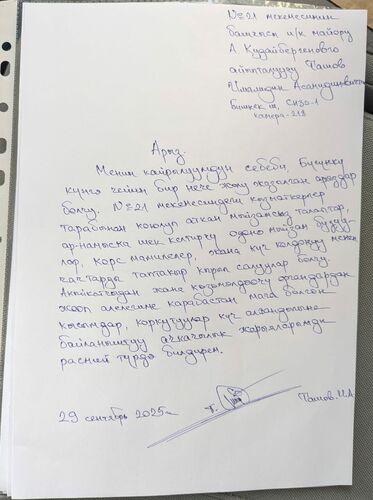 №21 мекемесинин
башчысы и/к майору
А Кудайбергеновго
айыпталуучу Пашов
Имамидин Асамидинович
Бишкек ш. СИЗО-1
камера-218
Арыз.
Менин кайрылуумдун себеби, Бүгүнкү
күнгө чейин бир нече жолу жазылган арыздар
болчу. №21 мекемесиндеги кызматкерлер
тарабынан коюлуп аткан мыйзамсыз талаптар,
ар-намыска шек келтирүү одоно мыйзам бузуу-
лар, корс мамилелер, жана күч колдонуу менен
качтарда таптакыр кирип салуулар болчу.
жана көзөмөлдөөчү органдардан
жооп алелегиме карабастан мага болгон
кысымдар, коркутуулар күч алгандыгына
байланыштуу ачкачылык жарыяларымды
расмий түрдө билдирем.
29 сентябрь 2025ж
Пашов. И.А